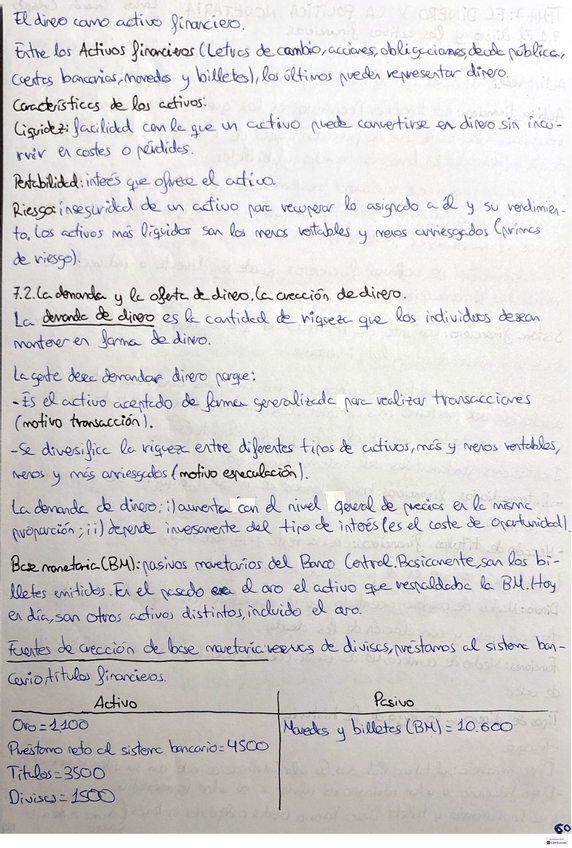 El dinero como activo financiero.
Entre los Activos financieros (Letras de cambio, acciones, obligaciones, deuda pública,
cuentas bancarias, monedas y billetes), los últimos pueden representar dinero.
Características de los activos:
Liquidez: facilidad con la que un activo puede convertirse en dinero sin incu-
rrir en costes o pérdidas.
Rentabilidad: interés que ofrece el activo.
Riesgo: inseguridad de un activo para recuperar lo asignado a él y su rendimien-
to. Los activos más líquidos son los menos rentables y menos arriesgados (primas
de riesgo).
7.2. La demanda y la oferta de dinero. La creación de dinero.
La demanda de dinero es la cantidad de riqueza que los individuos desean
mantener en forma de dinero.
La gente desea demandar dinero porque:
- Es el activo aceptado de forma generalizada para realizar transacciones
(motivo transacción).
- Se diversifica la riqueza entre diferentes tipos de activos, más y menos rentables,
menos y más arriesgados (motivo especulación).
La demanda de dinero: i) aumenta con el nivel general de precios en la misma
proporción; ii) depende inversamente del tipo de interés (es el coste de oportunidad).
Base monetaria (BM): pasivos monetarios del Banco Central. Basicamente, son los bi-
lletes emitidos. En el pasado era el oro el activo que respaldaba la BM. Hoy
en día, son otros activos distintos, incluido el oro.
Fuentes de creación de base monetaria: reservas de divisas, préstamos al sistema ban-
cario, títulos financieros.
Activo Pasivo
Oro = 1.100 Monedas y billetes (BM) = 10.600
Préstamo neto al sistema bancario = 4500
Títulos = 3500
Divisas = 1500
60